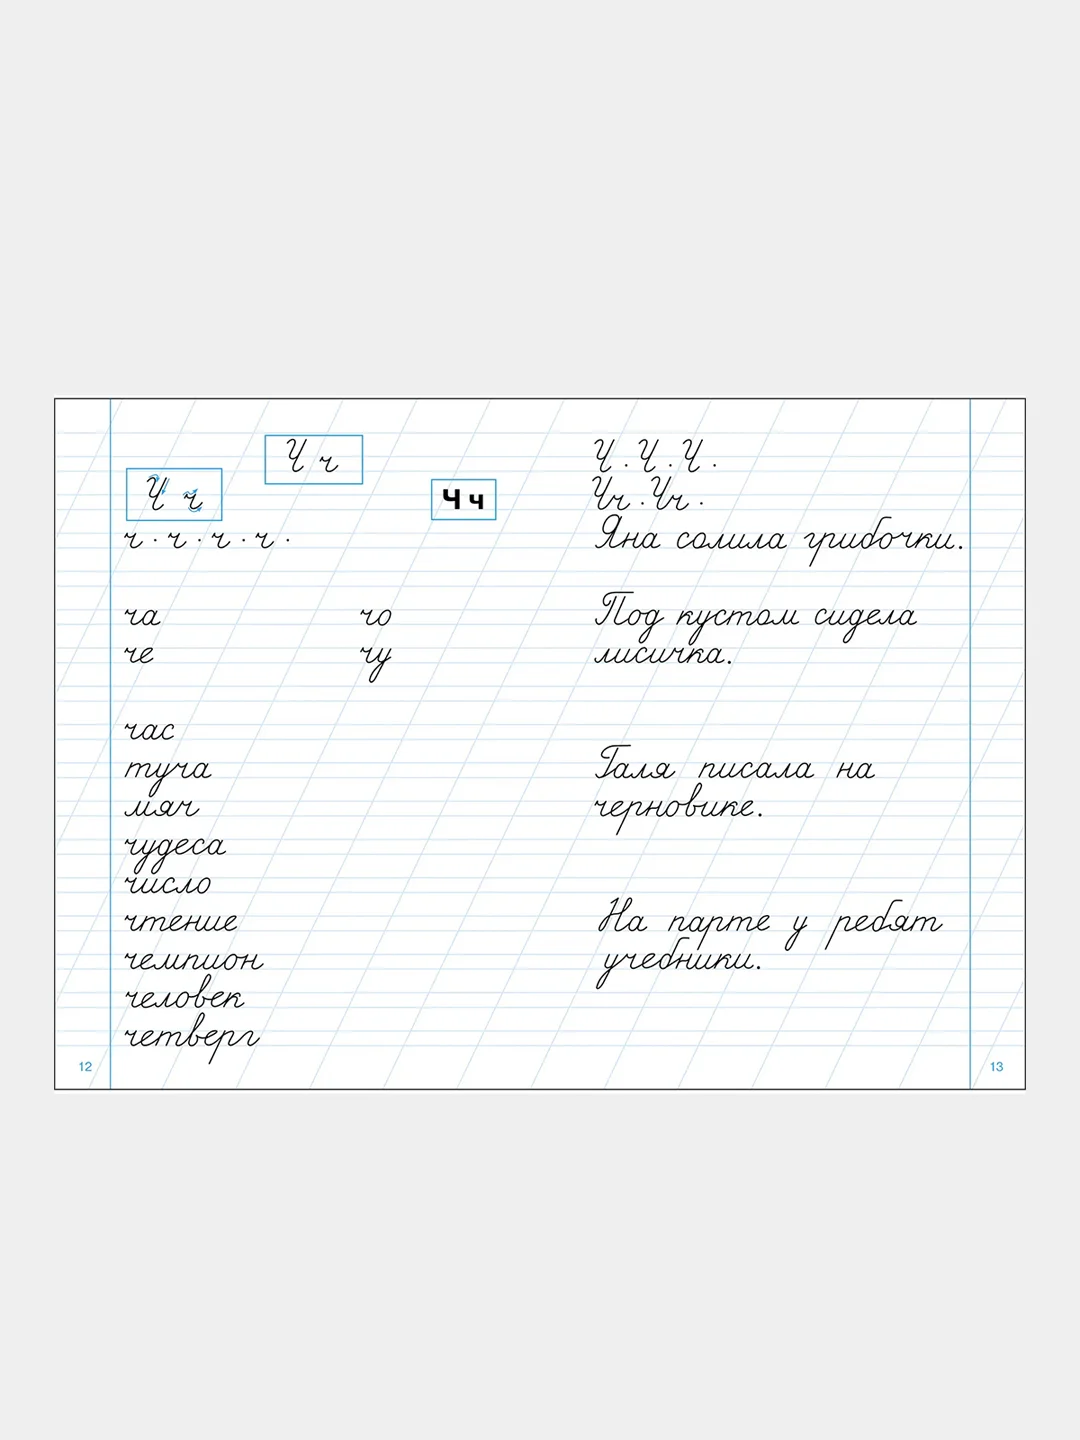 Ч ч
Ч ч
Ч ч
ч · ч · ч · ч ·
ча чо
че чу
час
туча
мяч
чудеса
число
чтение
чемпион
человек
четверг
12
Ч · Ч · Ч ·
Чч · Чч ·
Яна солила грибочки.
Под кустом сидела
лисичка.
Галя писала на
черновике.
На парте у ребят
учебники.
13